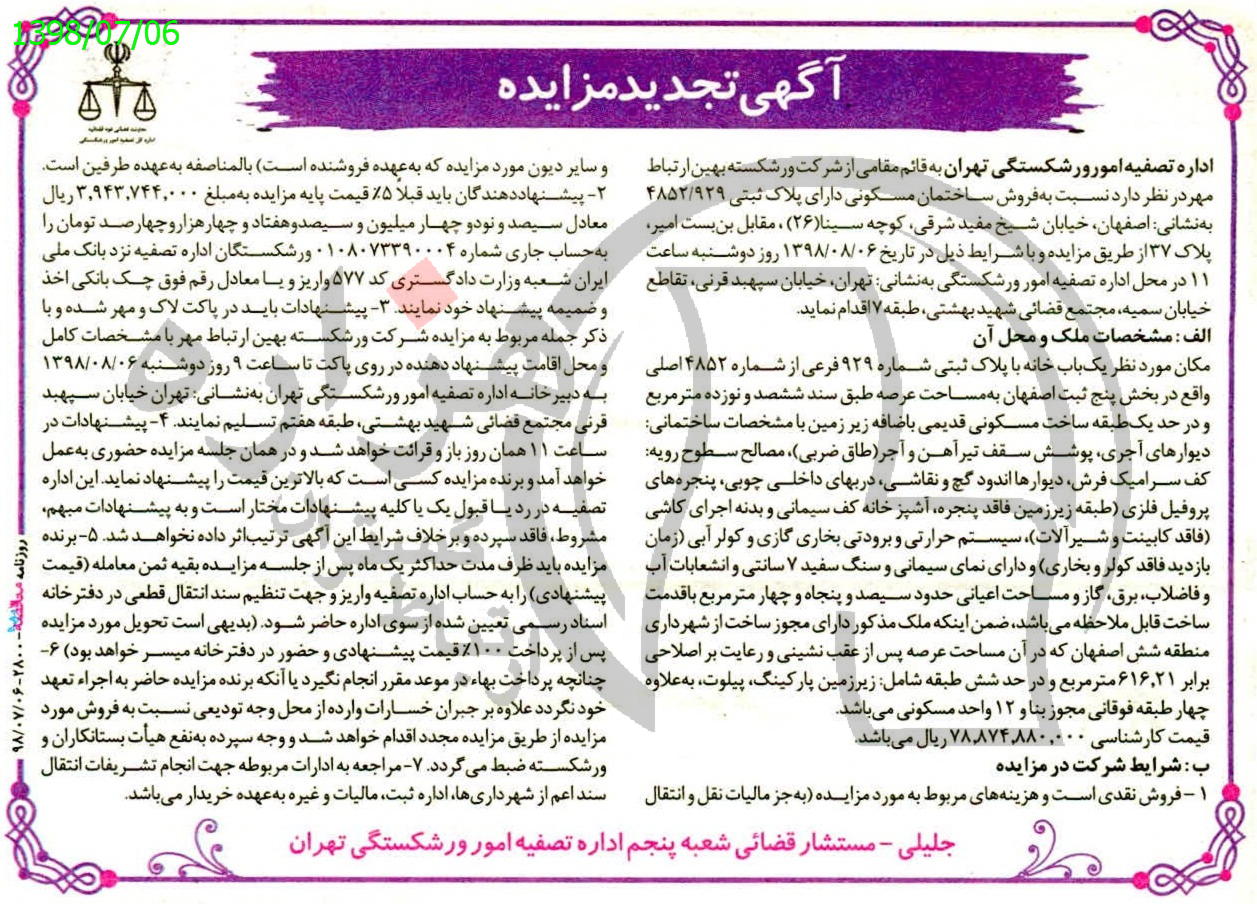 1398/07/06
معاونت قضائی قوه قضائیه
اداره کل تصفیه امور ورشکستگی
آگهی تجدید مزایده
اداره تصفیه امور ورشکستگی تهران به قائم مقامی از شرکت ورشکسته بهین ارتباط
مهر در نظر دارد نسبت به فروش ساختمان مسکونی دارای پلاک ثبتی ۴۸۵۲/۹۲۹
به‌نشانی: اصفهان، خیابان شیخ مفید شرقی، کوچه سینا(۲۶)، مقابل بن‌بست امیر،
پلاک ۳۷از طریق مزایده و با شرایط ذیل در تاریخ ۱۳۹۸/۰۸/۰۶ روز دوشنبه ساعت
۱۱ در محل اداره تصفیه امور ورشکستگی به‌نشانی: تهران، خیابان سپهبد قرنی، تقاطع
خیابان سمیه، مجتمع قضائی شهید بهشتی، طبقه ۷ اقدام نماید.
الف: مشخصات ملک و محل آن
مکان مورد نظر یک‌باب خانه با پلاک ثبتی شماره ۹۲۹ فرعی از شماره ۴۸۵۲ اصلی
واقع در بخش پنج ثبت اصفهان به‌مساحت عرصه طبق سند ششصد و نوزده مترمربع
و در حد یک‌طبقه ساخت مسکونی قدیمی باضافه زیر زمین با مشخصات ساختمانی:
دیوارهای آجری، پوشش سقف تیرآهن و آجر(طاق ضربی)، مصالح سطوح رویه:
کف سرامیک فرش، دیوارها اندود گچ و نقاشی، دربهای داخلی چوبی، پنجره‌های
پروفیل فلزی (طبقه زیرزمین فاقد پنجره، آشپزخانه کف سیمانی و بدنه اجرای کاشی
(فاقد کابینت و شیرآلات)، سیستم حرارتی و برودتی بخاری گازی و کولر آبی (زمان
بازدید فاقد کولر و بخاری) و دارای نمای سیمانی و سنگ سفید ۷ سانتی و انشعابات آب
و فاضلاب، برق، گاز و مساحت اعیانی حدود سیصد و پنجاه و چهار مترمربع باقدمت
ساخت قابل ملاحظه می‌باشد، ضمن اینکه ملک مذکور دارای مجوز ساخت از شهرداری
منطقه شش اصفهان که در آن مساحت عرصه پس از عقب نشینی و رعایت بر اصلاحی
برابر ۶۱۶,۲۱ مترمربع و در حد شش طبقه شامل: زیرزمین پارکینگ، پیلوت، به‌علاوه
چهار طبقه فوقانی مجوز بنا و ۱۲ واحد مسکونی می‌باشد.
قیمت کارشناسی ۷۸,۸۷۴,۸۸۰,۰۰۰ ریال می‌باشد.
ب: شرایط شرکت در مزایده
۱ – فروش نقدی است و هزینه‌های مربوط به مورد مزایده (به‌جز مالیات نقل و انتقال
و سایر دیون مورد مزایده که به‌عهده فروشنده است) بالمناصفه به‌عهده طرفین است.
۲- پیشنهاددهندگان باید قبلاً ۵٪ قیمت پایه مزایده به‌مبلغ ۳,۹۴۳,۷۴۴,۰۰۰ ریال
معادل سیصد و نود و چهار میلیون و سیصد و هفتاد و چهار هزار و چهارصد تومان را
به‌حساب جاری شماره ۰۱۰۸۰۷۳۳۹۰۰۰۴ ورشکستگان اداره تصفیه نزد بانک ملی
ایران شعبه وزارت دادگستری کد ۵۷۷ واریز و یا معادل رقم فوق چک بانکی اخذ
و ضمیمه پیشنهاد خود نمایند. ۳- پیشنهادات باید در پاکت لاک و مهر شده و با
ذکر جمله مربوط به مزایده شرکت ورشکسته بهین ارتباط مهر با مشخصات کامل
و محل اقامت پیشنهاد دهنده در روی پاکت تا ساعت ۹ روز دوشنبه ۱۳۹۸/۰۸/۰۶
به دبیرخانه اداره تصفیه امور ورشکستگی تهران به‌نشانی: تهران خیابان سپهبد
قرنی مجتمع قضائی شهید بهشتی، طبقه هفتم تسلیم نمایند. ۴- پیشنهادات در
ساعت ۱۱ همان روز باز و قرائت خواهد شد و در همان جلسه مزایده حضوری به‌عمل
خواهد آمد و برنده مزایده کسی است که بالاترین قیمت را پیشنهاد نماید. این اداره
تصفیه در رد یا قبول یک یا کلیه پیشنهادات مختار است و به پیشنهادات مبهم،
مشروط، فاقد سپرده و برخلاف شرایط این آگهی ترتیب‌اثر داده نخواهد شد. ۵- برنده
مزایده باید ظرف مدت حداکثر یک ماه پس از جلسه مزایده بقیه ثمن معامله (قیمت
پیشنهادی) را به حساب اداره تصفیه واریز و جهت تنظیم سند انتقال قطعی در دفترخانه
اسناد رسمی تعیین شده از سوی اداره حاضر شود. (بدیهی است تحویل مورد مزایده
پس از پرداخت ۱۰۰٪ قیمت پیشنهادی و حضور در دفترخانه میسر خواهد بود) ۶-
چنانچه پرداخت بهاء در موعد مقرر انجام نگیرد یا آنکه برنده مزایده حاضر به اجراء تعهد
خود نگردد علاوه بر جبران خسارات وارده از محل وجه تودیعی نسبت به فروش مورد
مزایده از طریق مزایده مجدد اقدام خواهد شد و وجه سپرده به‌نفع هیأت بستانکاران و
ورشکسته ضبط می‌گردد. ۷- مراجعه به ادارات مربوطه جهت انجام تشریفات انتقال
سند اعم از شهرداری‌ها، اداره ثبت، مالیات و غیره به‌عهده خریدار می‌باشد.
جلیلی – مستشار قضائی شعبه پنجم اداره تصفیه امور ورشکستگی تهران
روزنامه مناقصه مزایده – ۲۸۰۰ – ۹۸/۰۷/۰۶
هزاره
گستران
ارتباط